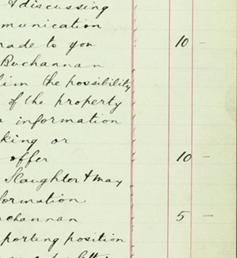 & discussing
munication
rade to you 10 -
Buchannan
im the possibility
of the property
information
king or
offer 10 -
Slaughter & may
formation
channan 5 -
porting position